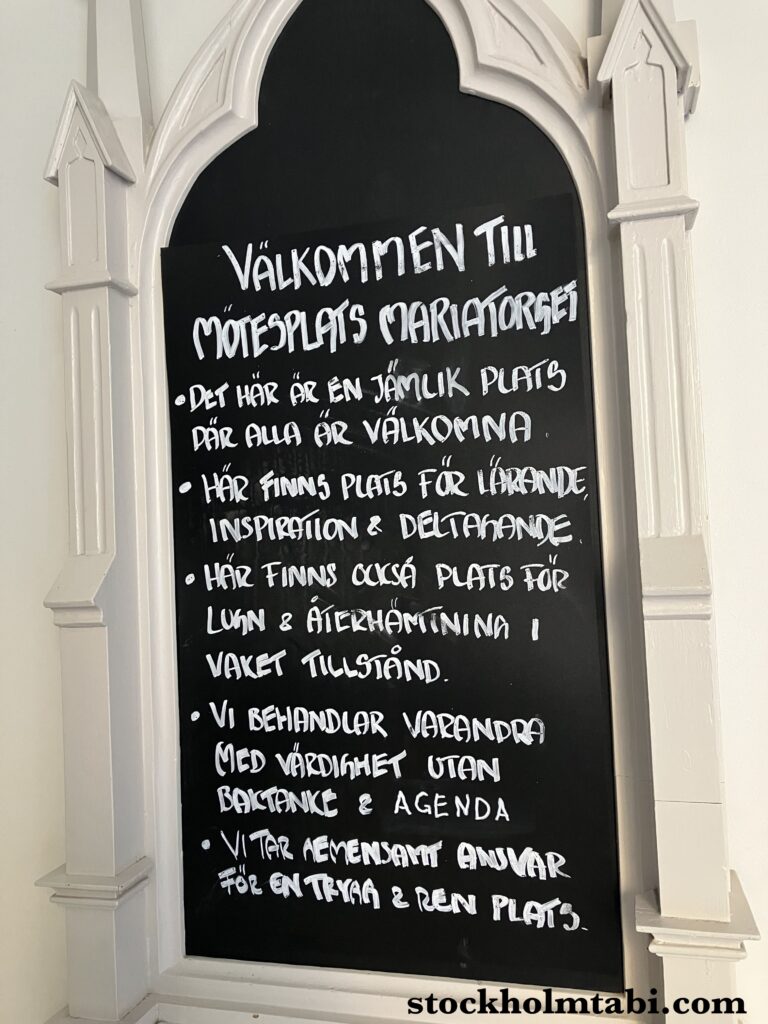 VÄLKOMMEN TILL
MÖTESPLATS MARIATORGET
• DET HÄR ÄR EN JÄMLIK PLATS
DÄR ALLA ÄR VÄLKOMNA.
• HÄR FINNS PLATS FÖR LÄRANDE,
INSPIRATION & DELTAGANDE.
• HÄR FINNS OCKSÅ PLATS FÖR
LUGN & ÅTERHÄMTNING I
VAKET TILLSTÅND.
• VI BEHANDLAR VARANDRA
MED VÄRDIGHET UTAN
BAKTANKE & AGENDA
• VI TAR GEMENSAMT ANSVAR
FÖR EN TRYGG & REN PLATS.
stockholmtabi.com